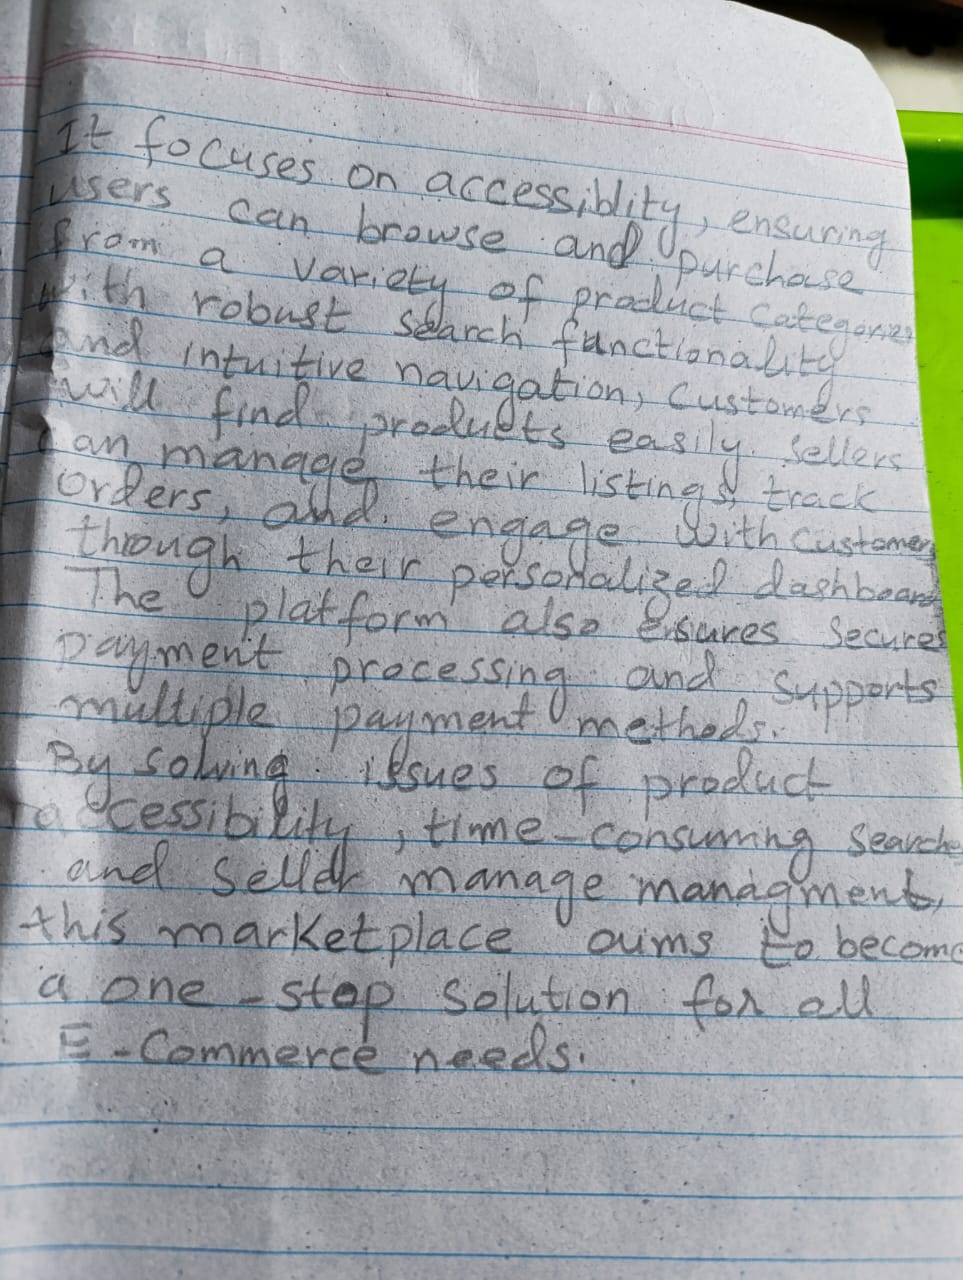 It focuses on accessiblity, ensuring
users can browse and purchase
from a variety of product categories
with robust search functionality
and intuitive navigation, customers
will find products easily. Sellers
can manage their listings, track
orders, and engage with customers
through their personalized dashboard
The platform also ensures secures
payment processing and supports
multiple payment methods.
By solving issues of product
accessibility, time-consuming searche
and seller manage managment,
this marketplace aims to become
a one-stop solution for all
E-Commerce needs.